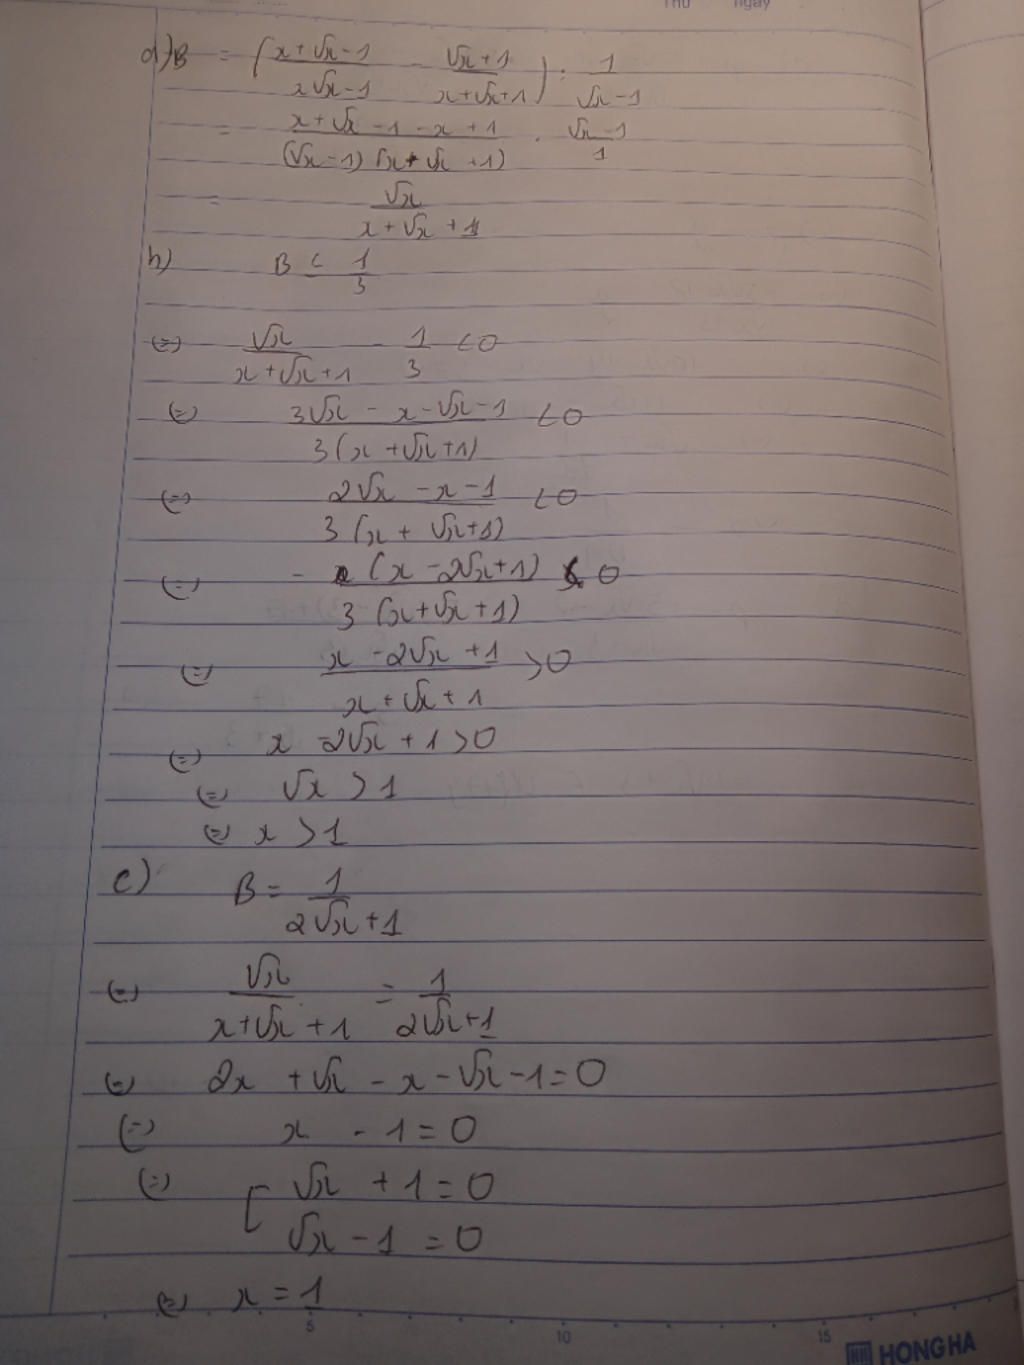 Thứ ngày
a) B = (x+√x-1 / x√x-1 - √x+1 / x+√x+1) : 1 / √x-1
= x+√x-1-x+1 / (√x-1)(x+√x+1) . √x-1 / 1
= √x / x+√x+1
b) B < 1/3
(=) √x / x+√x+1 - 1/3 <0
(=) 3√x-x-√x-1 / 3(x+√x+1) <0
(=) 2√x-x-1 / 3(x+√x+1) <0
(=) -(x-2√x+1) / 3(x+√x+1) < 0
(=) x-2√x+1 / x+√x+1 >0
(=) x-2√x+1>0
(=) √x >1
(=) x >1
c) B = 1 / 2√x+1
(=) √x / x+√x+1 = 1 / 2√x+1
(=) 2x+√x-x-√x-1=0
(=) x-1=0
(=) [ √x+1=0
√x-1=0
(=) x=1
5 10 15
HONG HA